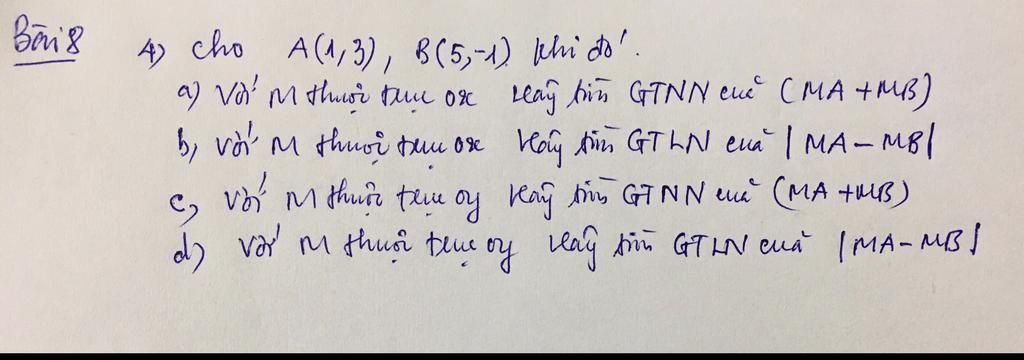 Bài 8 4) cho A(1,3), B(5,-1) khi đó.
a) Với M thuộc trục ox hãy tìm GTNN của (MA+MB)
b) với M thuộc trục ox hãy tìm GTLN của |MA-MB|
c) với M thuộc trục oy hãy tìm GTNN của (MA+MB)
d) với M thuộc trục oy hãy tìm GTLN của |MA-MB|